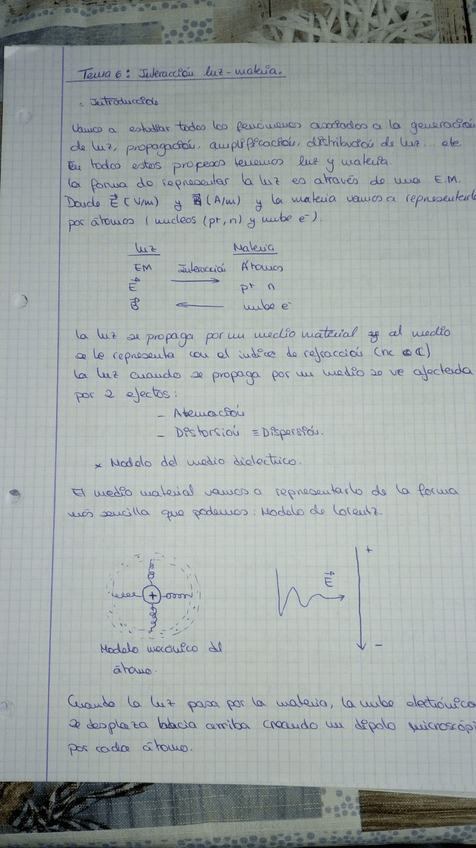 Tema 6: Interacción luz-materia.
· Introducción
Vamos a estudiar todos los fenómenos asociados a la generación
de luz, propagación, amplificación, distribución de luz... etc
En todos estos procesos tenemos luz y materia.
la forma de representar la luz es através de una E.M.
Donde E (V/m) y B (A/m) y la materia vamos a representarla
por átomos (nucleos (p+, n) y nube e-).
luz Materia
EM Interacción Átomos
E p+ n
B nube e-
la luz se propaga por un medio material y al medio
se le representa con el indice de refracción (n ∈ ℂ)
la luz cuando se propaga por un medio se ve afectada
por 2 efectos:
- Atenuación
- Distorsión ≡ Dispersión.
* Modelo del medio dielectrico.
El medio material vamos a representarlo de la forma
más sencilla que podemos: Modelo de Lorentz.
+
E
+
-
Modelo mecánico del
átomo.
Cuando la luz pasa por la materia, la nube electrónica
se desplaza hacia arriba creando un dipolo microscópi
por cada átomo.